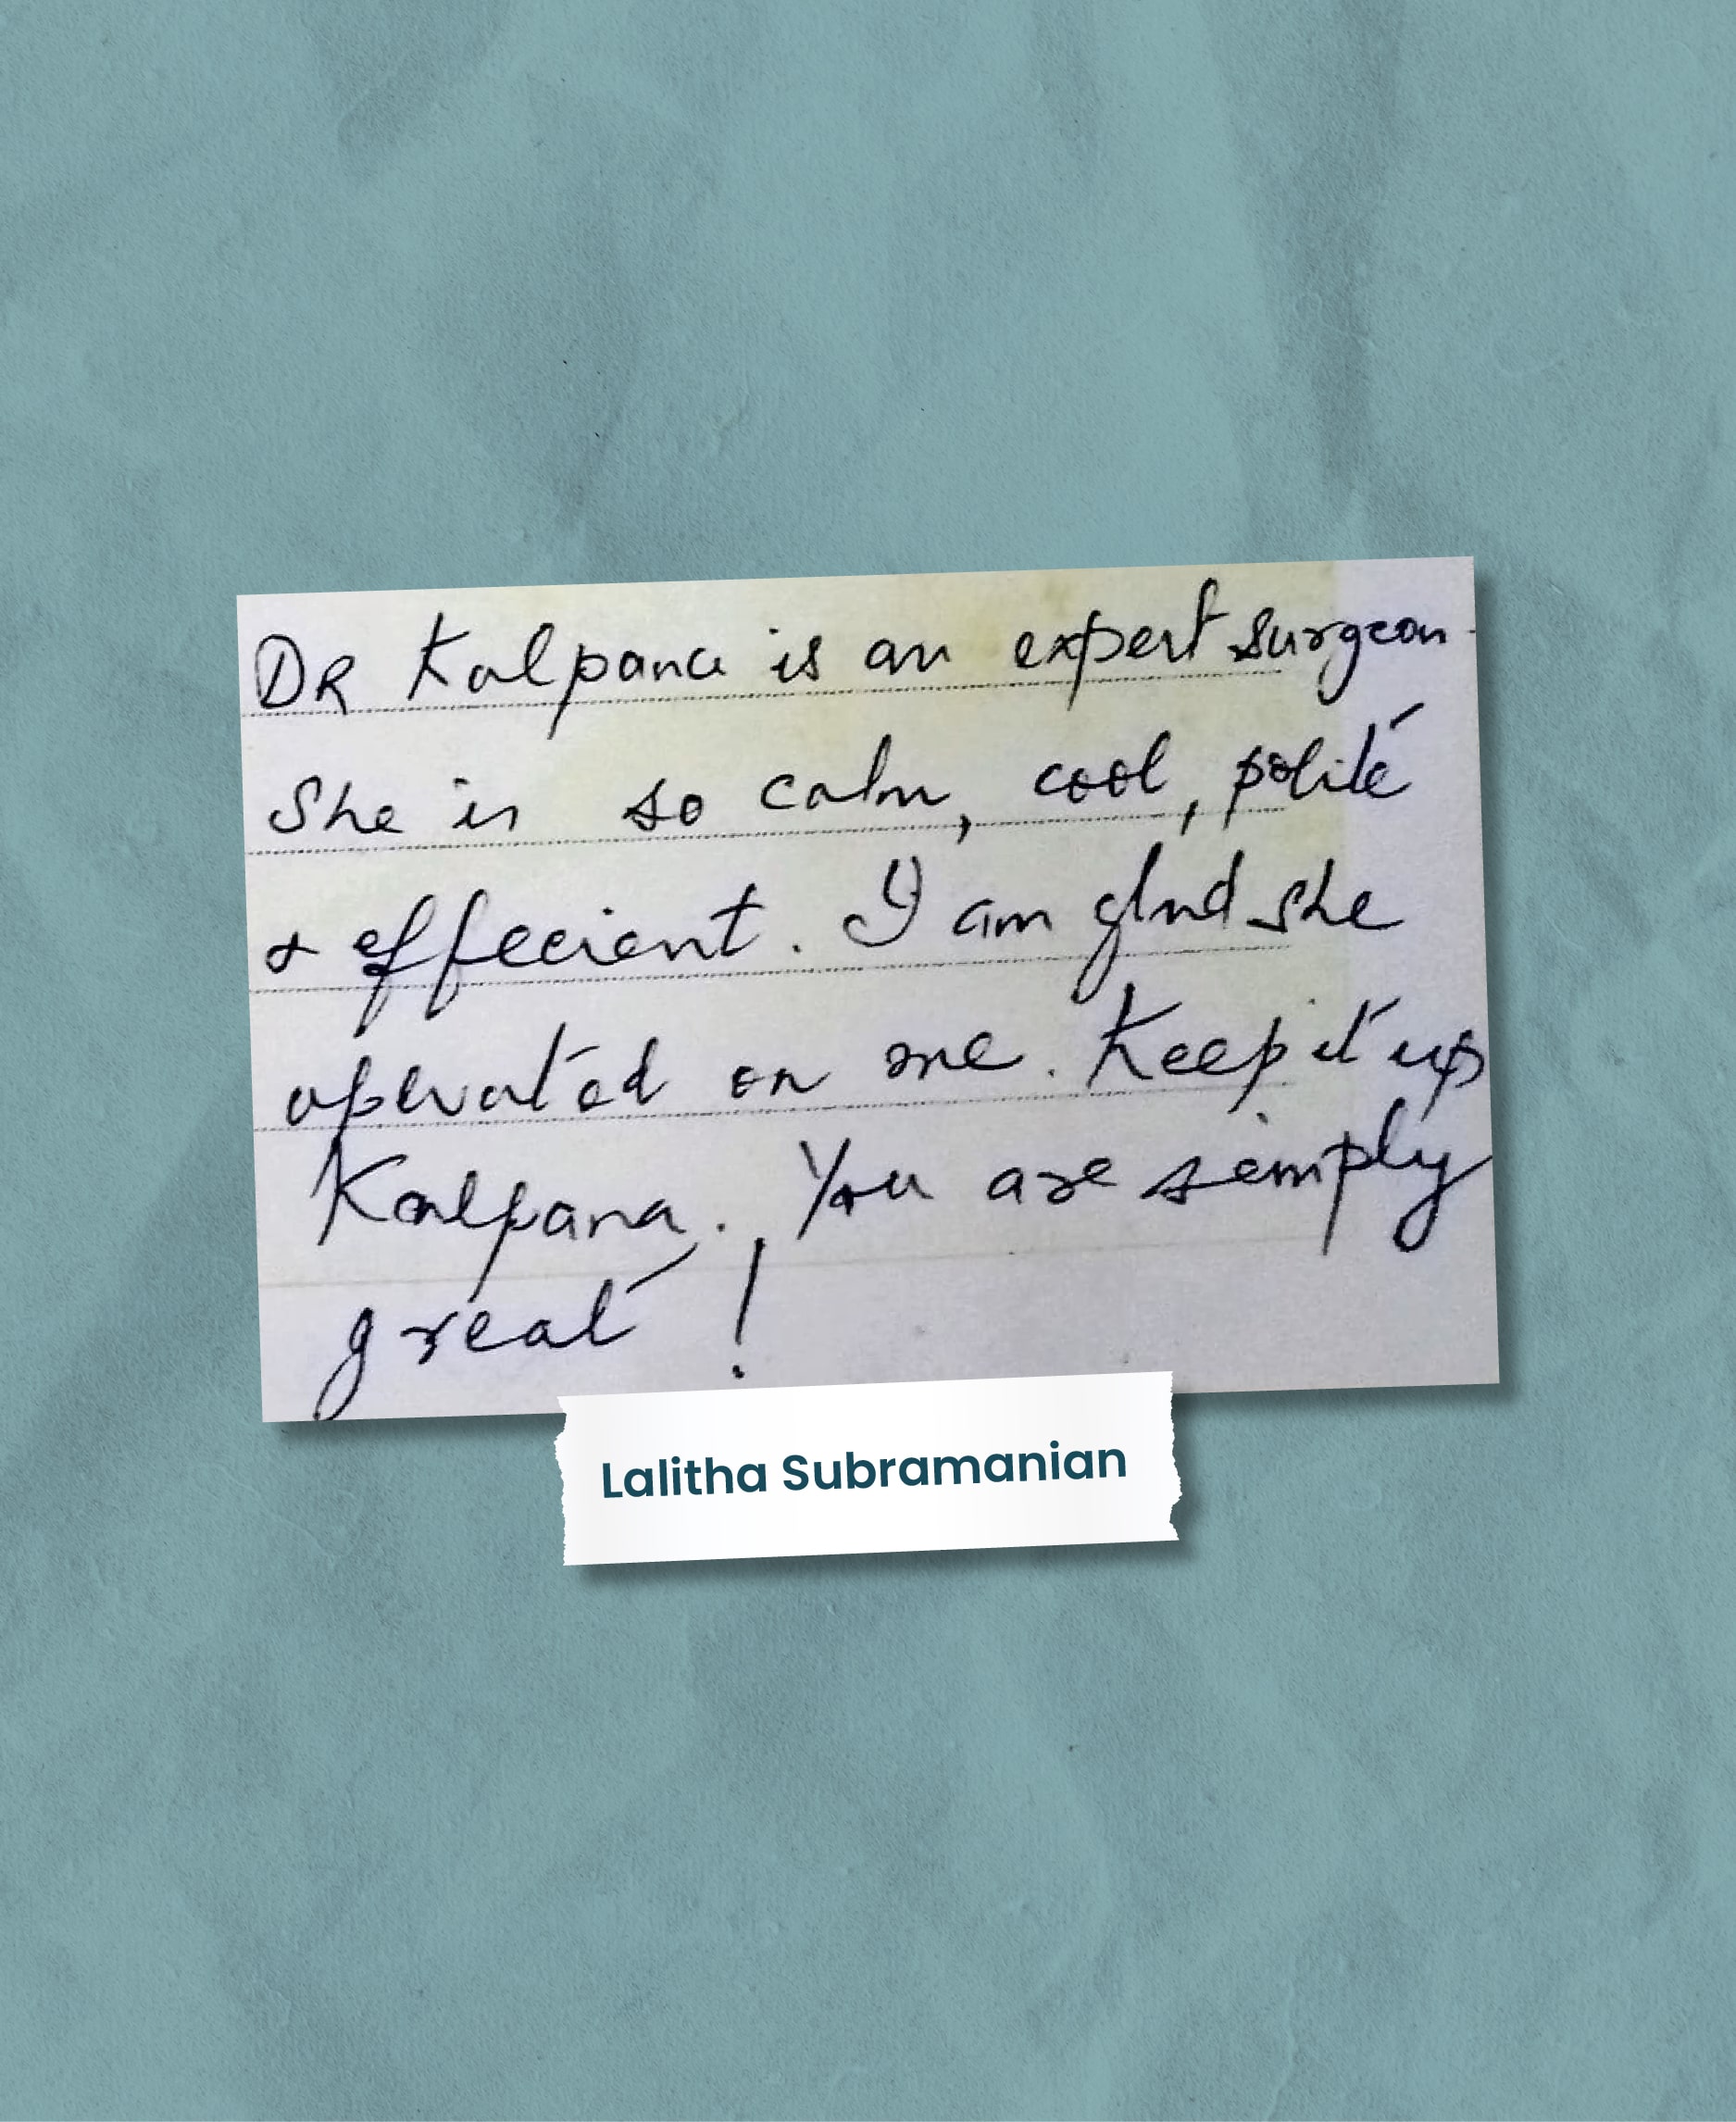 DR Kalpana is an expert surgeon.
She is so calm, cool, polite
& effecient. I am glad she
operated on me. Keep it up
Kalpana. You are simply
great!
Lalitha Subramanian